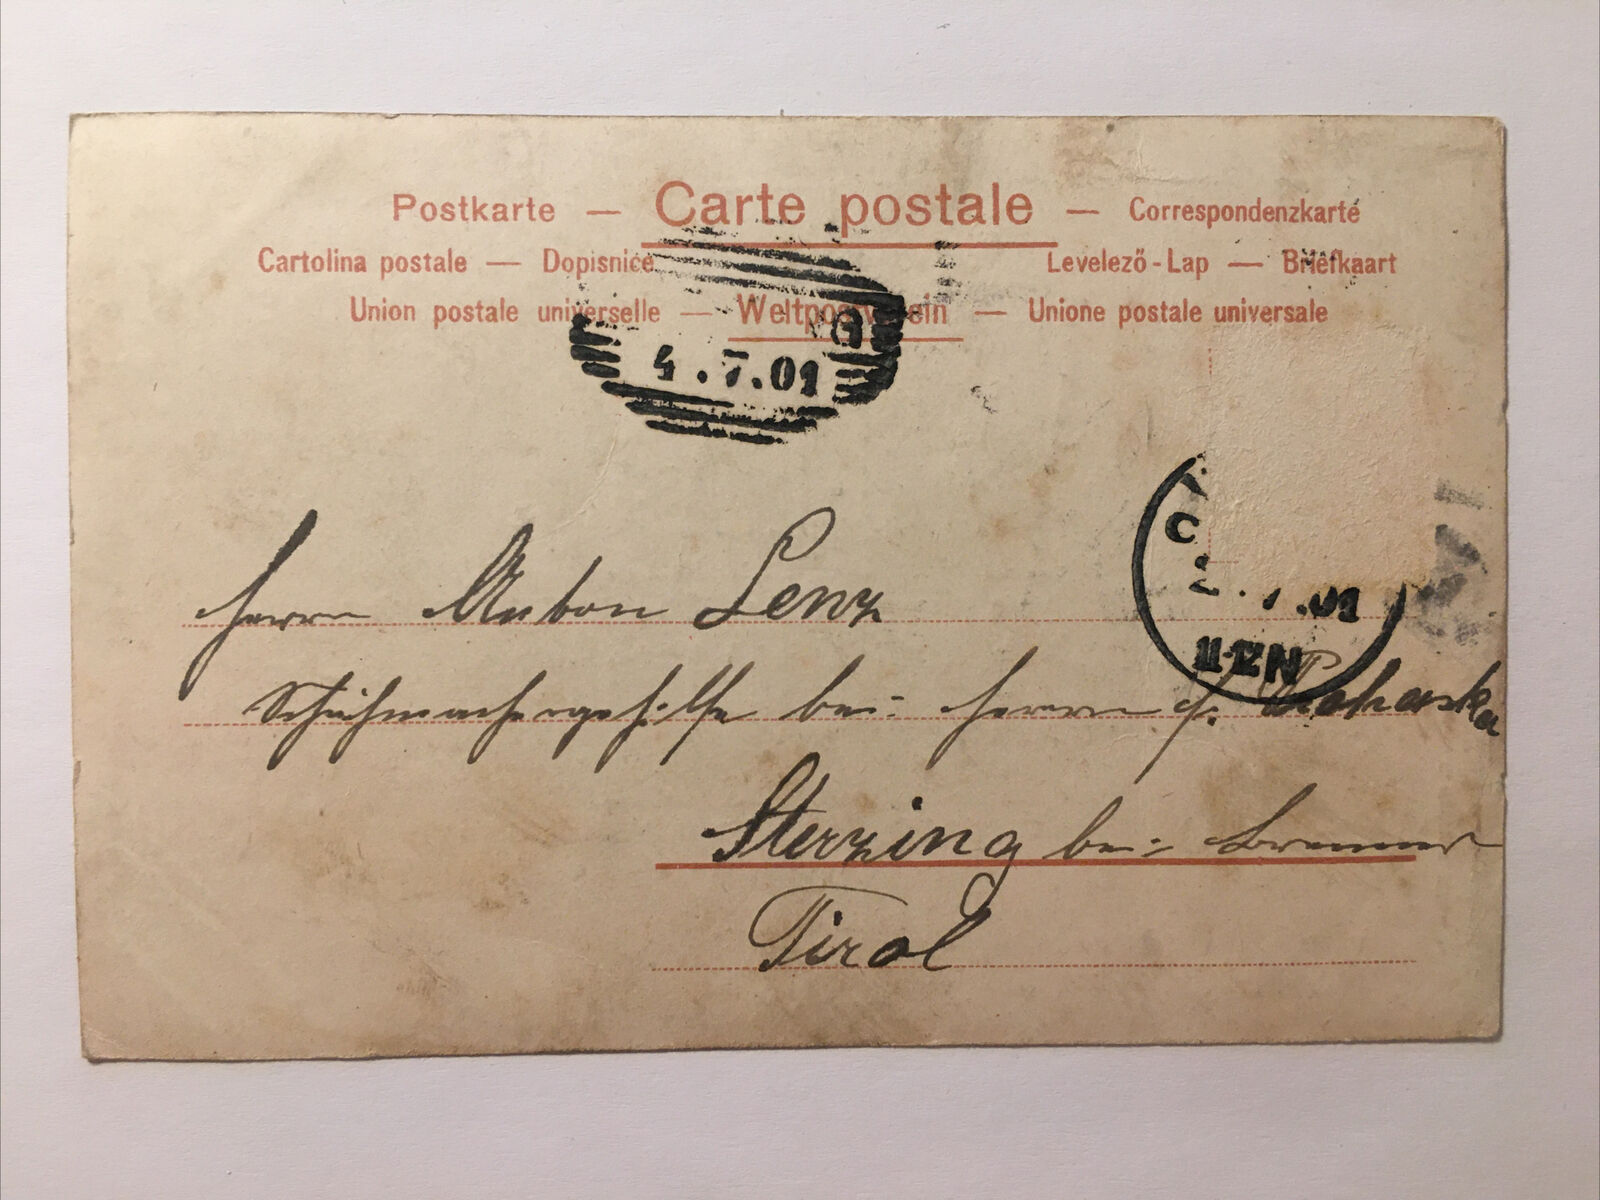 Postkarte — Carte postale — Correspondenzkarte
Cartolina postale — Dopisnice Levelező-Lap — Briefkaart
Union postale universelle — Weltpostverein — Unione postale universale
4.7.01
C
2.7.01
11-12 N
Herrn Anton Lenz
Schuhmachergehilfe bei Herrn J. Prohaska
Sterzing bei Brenner
Tirol